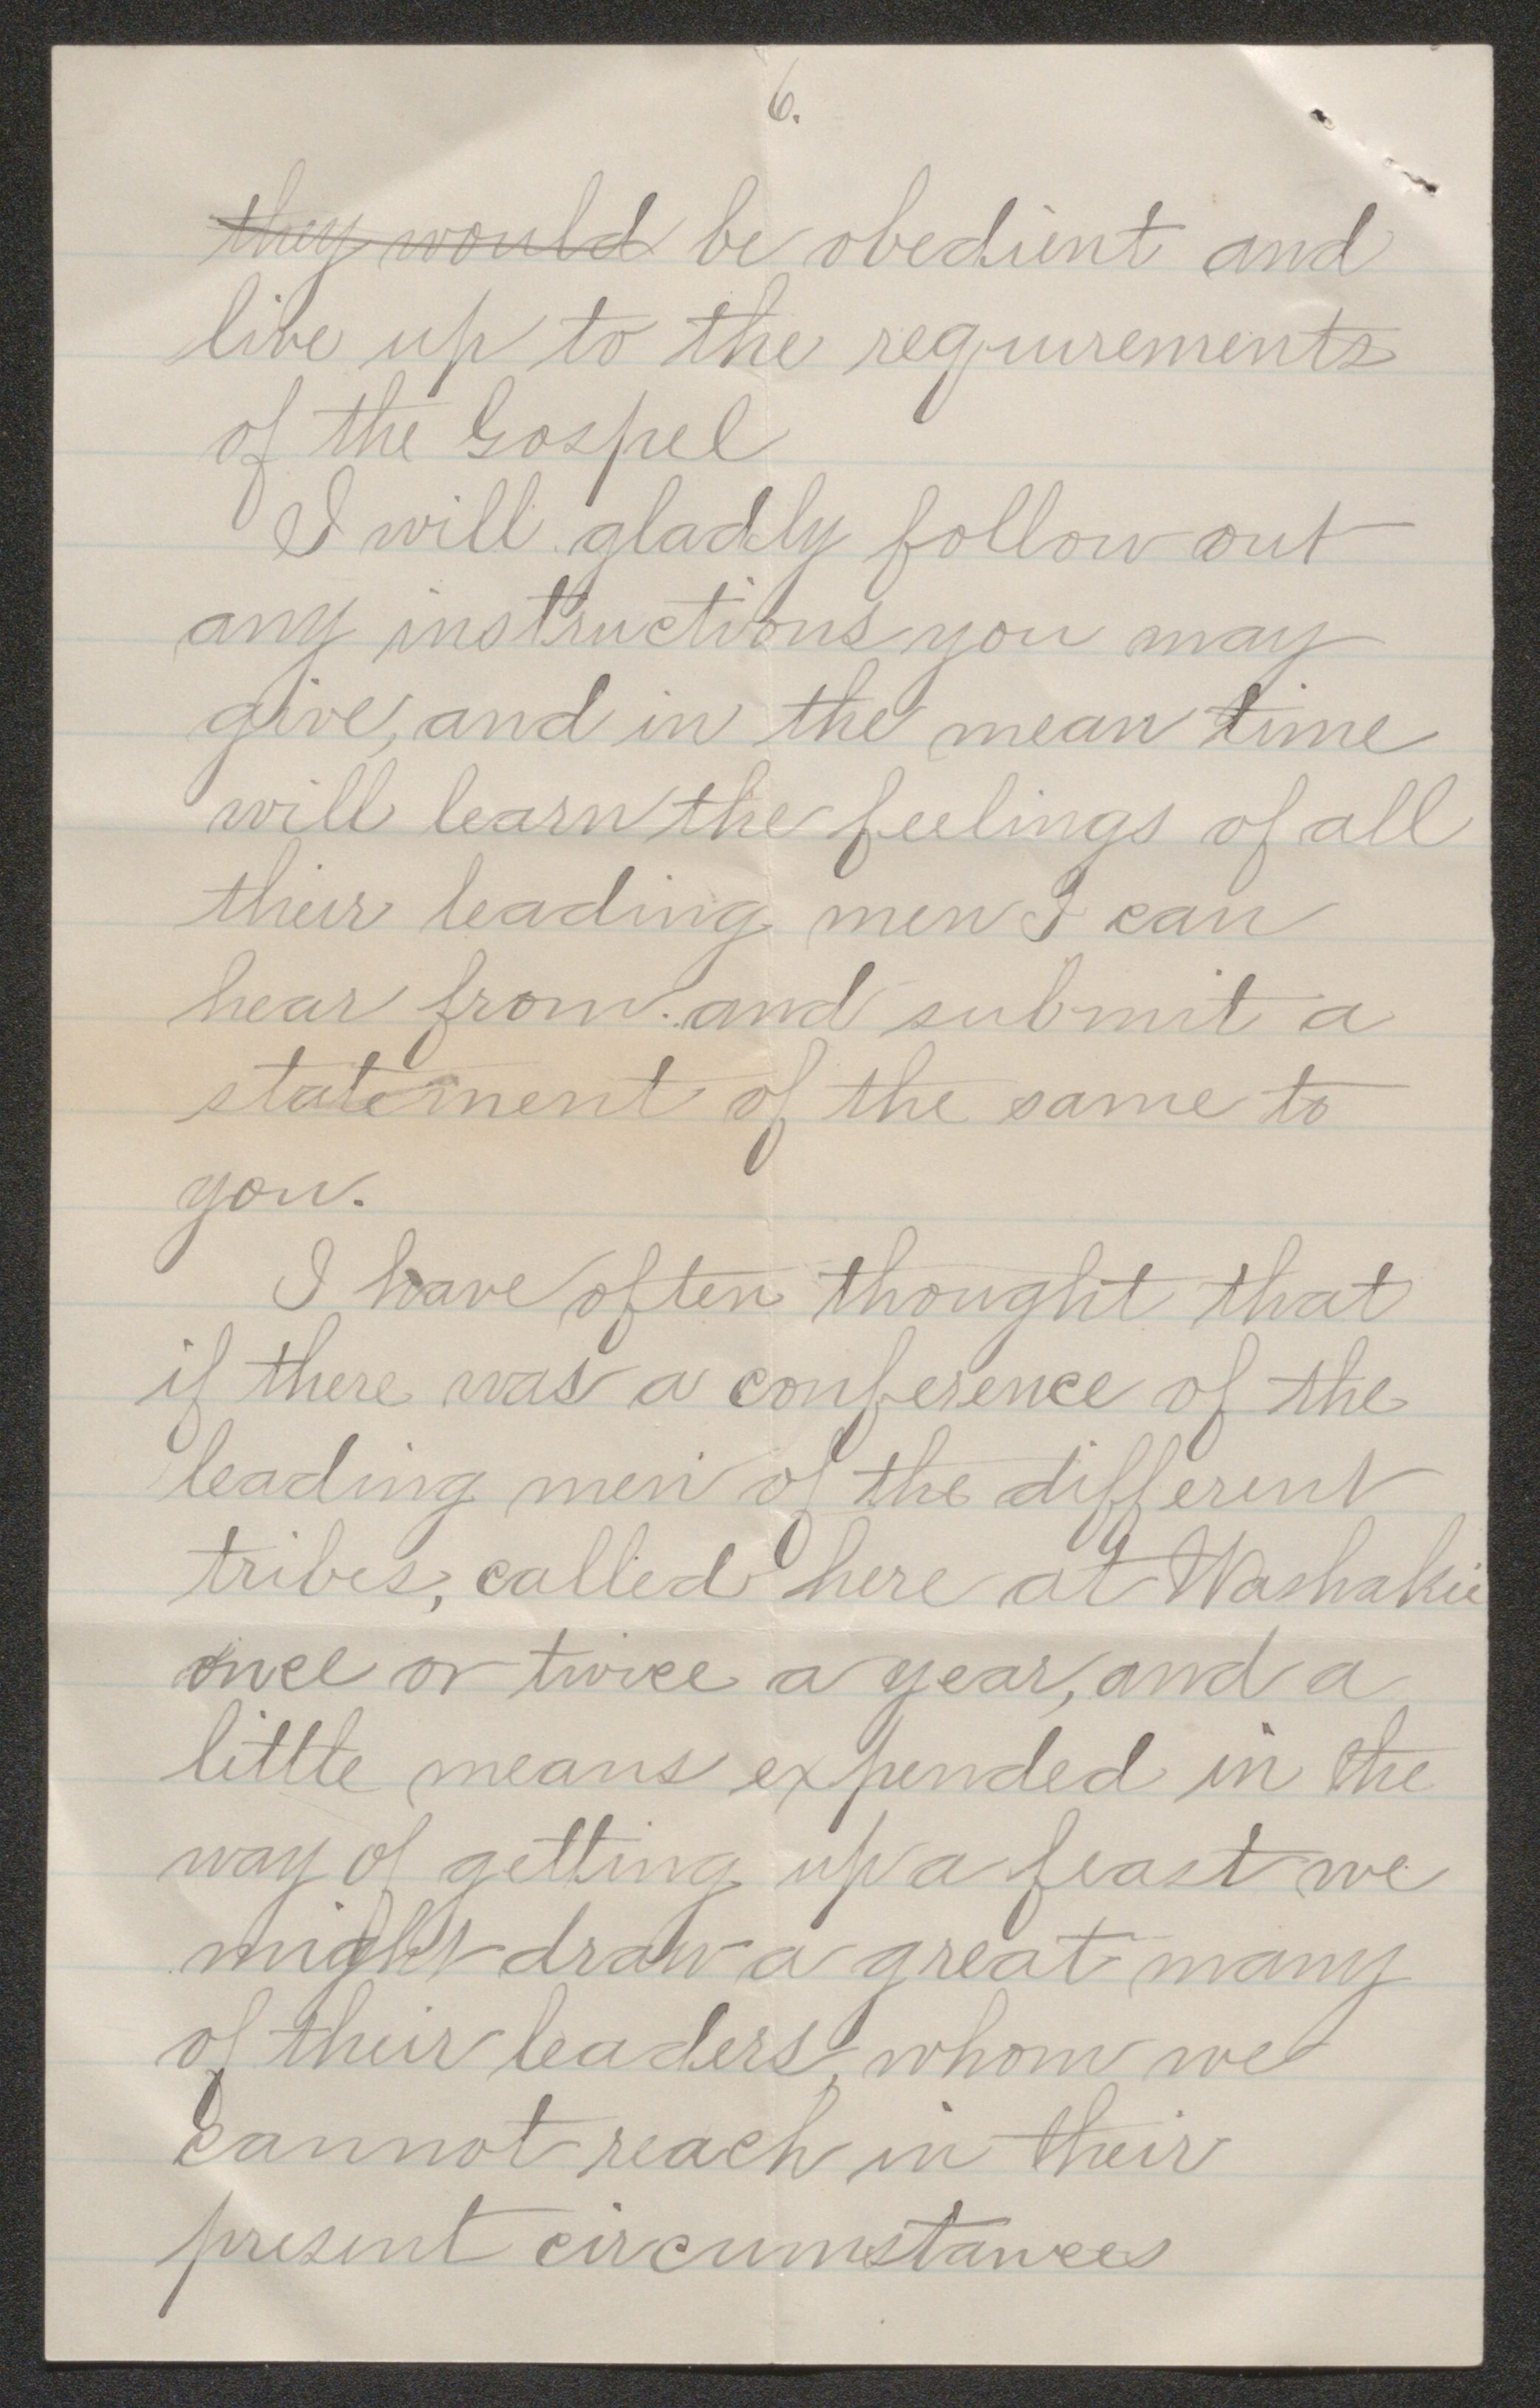 6.
~~they would~~ be obedient and
live up to the requirements
of the Gospel
I will gladly follow out
any instructions you may
give, and in the mean time
will learn the feelings of all
their leading men I can
hear from. and submit a
statement of the same to
you.
I have often thought that
if there was a conference of the
leading men of the different
tribes, called here at Washakie
once or twice a year, and a
little means expended in the
way of getting up a feast we
might draw a great many
of their leaders, whom we
cannot reach in their
present circumstances